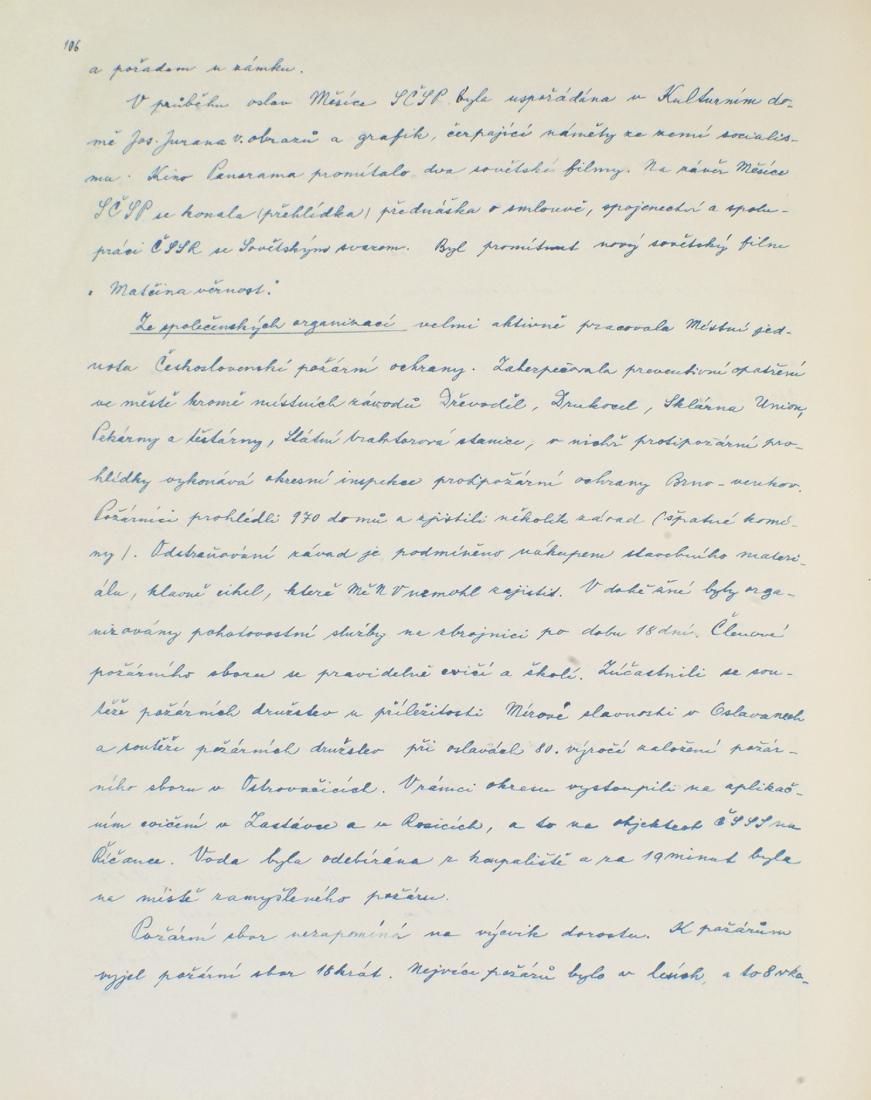 106
a pořadem u zámku.
V průběhu oslav Měsíce SČSP byla uspořádána v Kulturním do-
mě Jos. Jurana v. obrazů a grafik, čerpající náměty ze zemí socialis-
mu. Kino Panorama promítalo dva sovětské filmy. Na závěr Měsíce
SČSP se konala (přehlídka) přednáška o smlouvě, spojenectví a spolu-
práci ČSSR se Sovětským svazem. Byl promítnut nový sovětský film
"Matčina věrnost."
Ze společenských organizací velmi aktivně pracovala Místní jed-
nota Československé požární ochrany. Zabezpečovala preventivní opatření
ve městě kromě místních závodů Dřevoděl, Drukocel, Sklárna Union,
Pekárny a těstárny, Státní traktorová stanice, v nichž protipožární pro-
hlídky vykonává okresní inspekce protipožární ochrany Brno-venkov.
Požárníci prohlédli 970 domů a zjistili několik závad (špatné komí-
ny). Odstraňování závad je podmíněno nákupem stavebního materi-
álu, hlavně cihel, které MěNV nemohl zajistit. V době žní byly orga-
nizovány pohotovostní služby na zbrojnici po dobu 18 dní. Členové
požárního sboru se pravidelně cvičí a školí. Zúčastnili se sou-
těže požárních družstev u příležitosti Mírové slavnosti v Oslavanech
a soutěže požárních družstev při oslavách 80. výročí založení požár-
ního sboru v Ostrovačicích. V rámci okresu vystoupili na aplikač-
ním cvičení v Zastávce a v Rosicích, a to na objektech ČSSS na
Říčance. Voda byla odebírána z koupaliště a za 19 minut byla
na místě zamyšleného požáru.
Požární sbor nezapomíná na výcvik dorostu. K požárům
vyjel požární sbor 18krát. Nejvíce požárů bylo v lesích, a to 8 v ka-